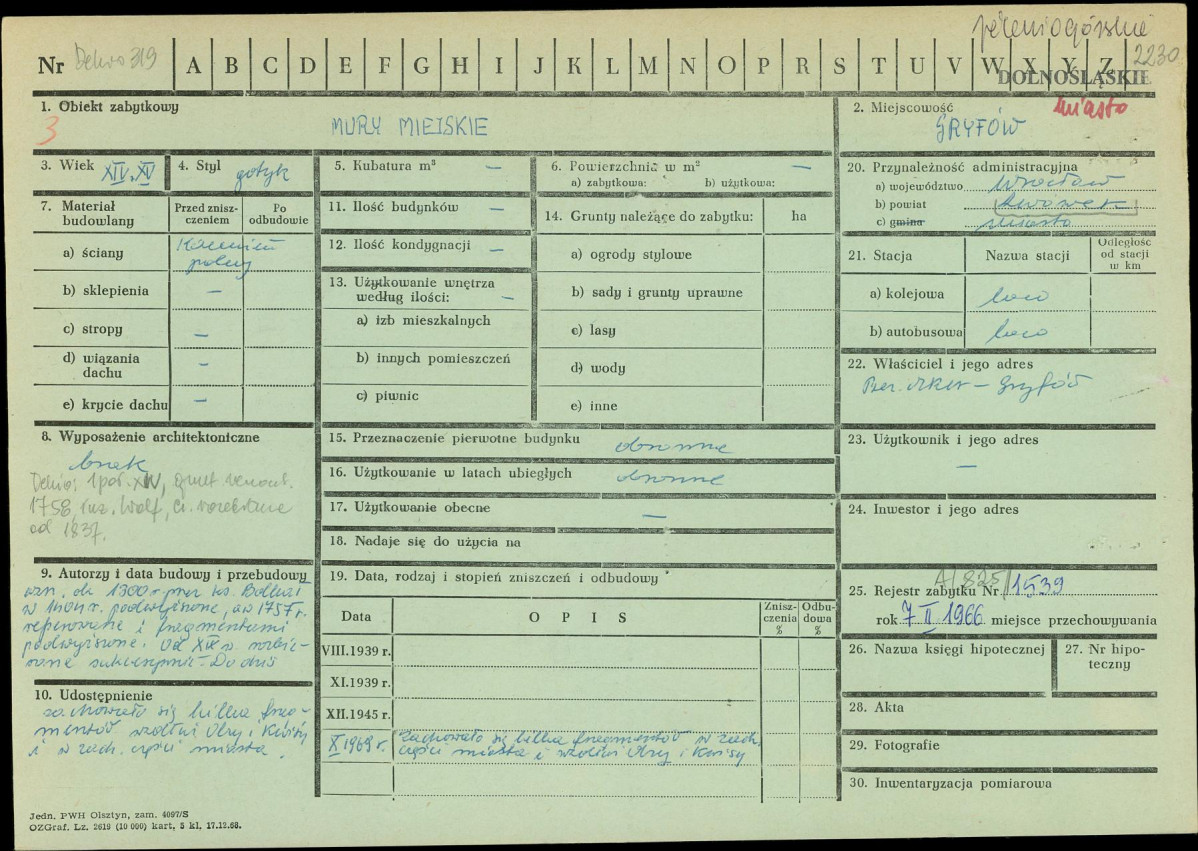 jeleniogórskie
Nr Dehio 319 A B C D E F G H I J K L M N O P R S T U V W X Y Z 2230
DOLNOŚLĄSKIE
1. Obiekt zabytkowy
3
MURY MIEJSKIE
2. Miejscowość miasto
GRYFÓW
3. Wiek XIV, XV
4. Styl gotyk
5. Kubatura m³ —
6. Powierzchnia w m² —
a) zabytkowa: b) użytkowa:
20. Przynależność administracyjna
a) województwo Wrocław
b) powiat Lwówek
c) gmina miasto
7. Materiał budowlany
Przed zniszczeniem
Po odbudowie
a) ściany Kamień polny
b) sklepienia —
c) stropy —
d) wiązania dachu —
e) krycie dachu —
11. Ilość budynków —
12. Ilość kondygnacji —
13. Użytkowanie wnętrza
według ilości: —
a) izb mieszkalnych
b) innych pomieszczeń
c) piwnic
14. Grunty należące do zabytku: ha
a) ogrody stylowe
b) sady i grunty uprawne
c) lasy
d) wody
e) inne
21. Stacja
Nazwa stacji
Odległość od stacji w km
a) kolejowa loco
b) autobusowa loco
22. Właściciel i jego adres
Prez. MRN – Gryfów
8. Wyposażenie architektoniczne
brak
Dehio: 1 poł. XIV, grunt. renowt.
1758, inż. Wolf, cz. rozebrane
od 1837.
15. Przeznaczenie pierwotne budynku obronne
16. Użytkowanie w latach ubiegłych obronne
17. Użytkowanie obecne —
18. Nadaje się do użycia na
23. Użytkownik i jego adres
—
24. Inwestor i jego adres
9. Autorzy i data budowy i przebudowy
wzn. ok 1300 r. przez ks. Bolka I
w 1404 r. podwyższone, a w 1757 r.
reperowane i fragmentami
podwyższone. Od XIX w. rozbierane
sukcesywnie – Do dziś
10. Udostępnienie
zachowało się kilka fragmentów
wzdłuż Olszy i Kwisy
i w zach. części miasta.
19. Data, rodzaj i stopień zniszczeń i odbudowy
Data
O P I S
Zniszczenia %
Odbudowa %
VIII.1939 r.
XI.1939 r.
XII.1945 r.
X 1969 r. Zachowało się kilka fragmentów w zach.
części miasta i wzdłuż Olszy i Kwisy
25. Rejestr zabytku Nr A/825/1539
rok 7 II 1966 miejsce przechowywania
26. Nazwa księgi hipotecznej
27. Nr hipoteczny
28. Akta
29. Fotografie
30. Inwentaryzacja pomiarowa
Jedn. PWH Olsztyn, zam. 4097/S
OZGraf. Lz. 2619 (10 000) kart, 5 kl, 17.12.68.